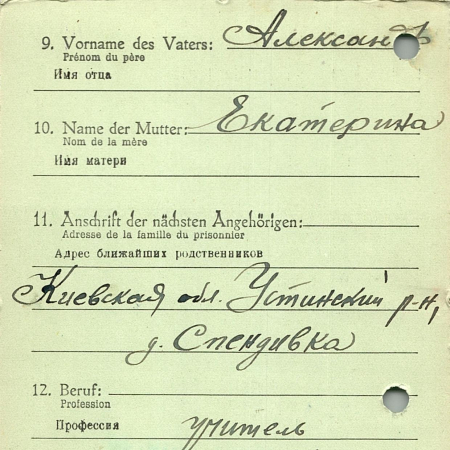 9. Vorname des Vaters: Александр
Prénom du père
Имя отца
10. Name der Mutter: Екатерина
Nom de la mère
Имя матери
11. Anschrift der nächsten Angehörigen:
Adresse de la famille du prisonnier
Адрес ближайших родственников
Киевская обл. Устинский р-н,
д. Спендивка
12. Beruf:
Profession
Профессия учитель